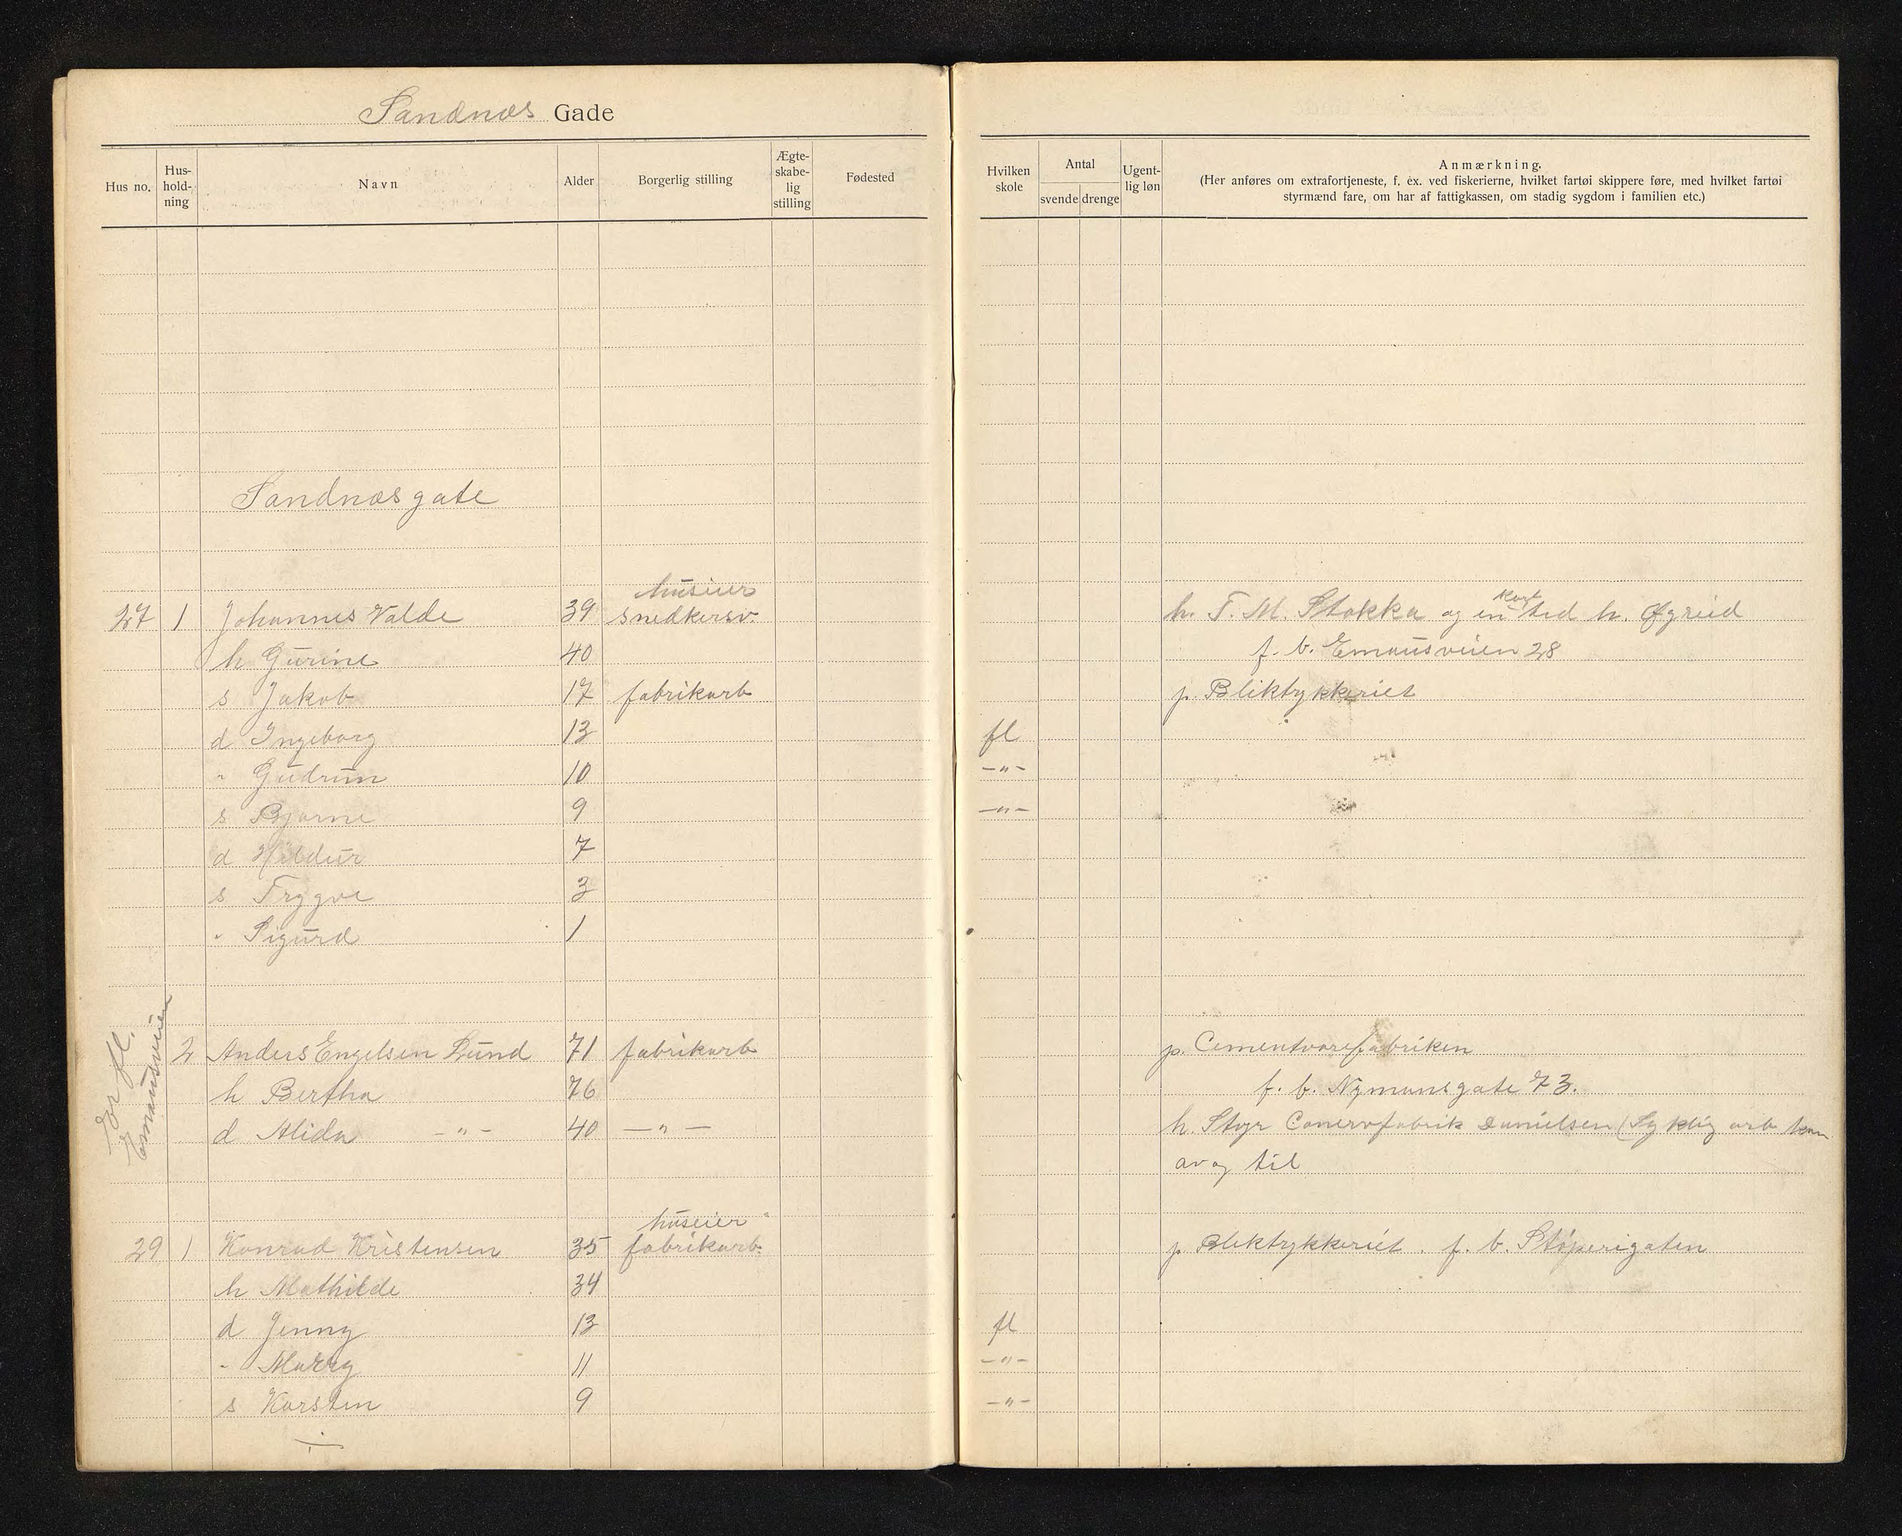 Sandnæs Gade
Hus no. Hus-hold-ning Navn Alder Borgerlig stilling Ægte-skabe-lig stilling Fødested
Hvilken skole Antal svende drenge Ugent-lig løn Anmærkning.
(Her anføres om extrafortjeneste, f. ex. ved fiskerierne, hvilket fartøi skippere føre, med hvilket fartøi
styrmænd fare, om har af fattigkassen, om stadig sygdom i familien etc.)
Sandnæsgate
huseier
27 1 Johannes Valde 39 snedkersv. h. T. M. Stokka og en kort tid h. Øgreid
h Gurine 40 f. b. Emausveien 28
s Jakob 17 fabrikarb p. Bliktykkeriet
d Ingeborg 13 fl
" Gudrun 10 -"-
s Bjarne 9 -"-
d Hildur 7
s Trygve 3
" Sigurd 1
2 Anders Engelsen Lund 71 fabrikarb p. Cementvarefabriken
h Bertha 76 f. b. Nymansgate 73.
d Alida -"- 40 -"- h. Styr Conservfabrik Danielsen (Syklig arb kan
av og til
Emausveien
huseier
29 1 Konrad Kristensen 35 fabrikarb. p. Bliktrykkeriet. f. b. Støperigaten
h Mathilde 34
d Jenny 13 fl
" Marry 11 -"-
s Karsten 9 -"-